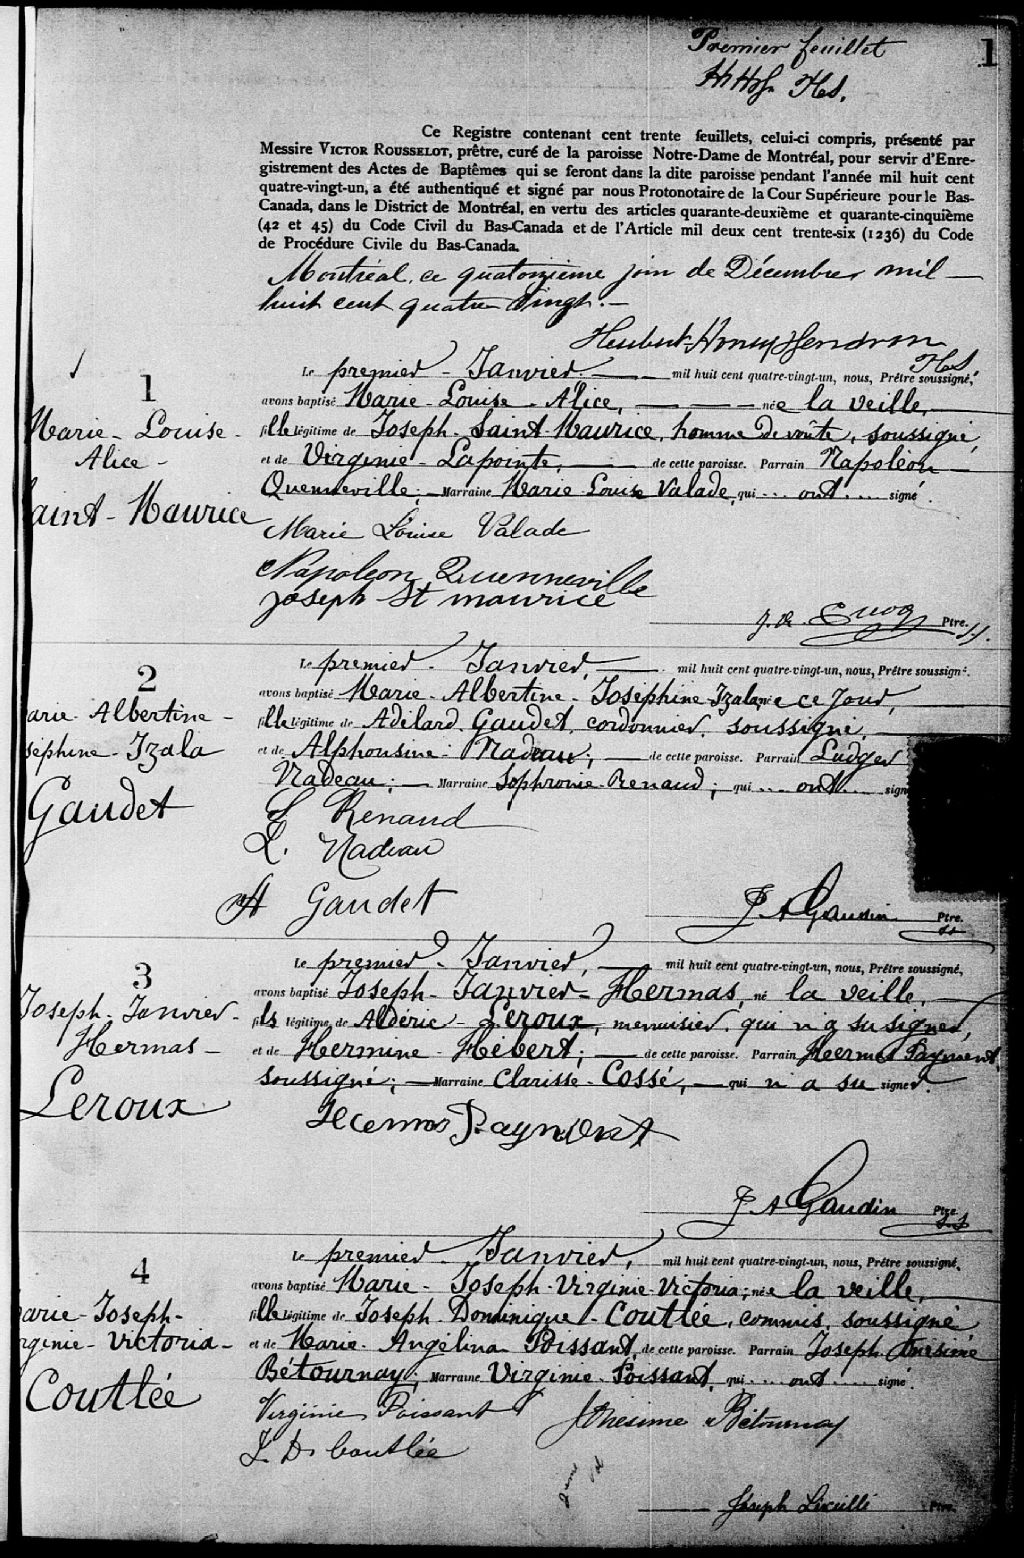 Premier feuillet
1
HHH Hs.
Ce Registre contenant cent trente feuillets, celui-ci compris, présenté par
Messire VICTOR ROUSSELOT, prêtre, curé de la paroisse Notre-Dame de Montréal, pour servir d'Enre-
gistrement des Actes de Baptêmes qui se feront dans la dite paroisse pendant l'année mil huit cent
quatre-vingt-un, a été authentiqué et signé par nous Protonotaire de la Cour Supérieure pour le Bas-
Canada, dans le District de Montréal, en vertu des articles quarante-deuxième et quarante-cinquième
(42 et 45) du Code Civil du Bas-Canada et de l'Article mil deux cent trente-six (1236) du Code
de Procédure Civile du Bas-Canada.
Montréal, ce quatorzième jour de Décembre mil
huit cent quatre vingt.
1
Marie-Louise-
Alice-
aint-Maurice
Le premier Janvier mil huit cent quatre-vingt-un, nous, Prêtre soussigné,
avons baptisé Marie-Louise-Alice, née la veille,
fille légitime de Joseph Saint Maurice, homme de route, soussigné,
et de Virginie Lapointe, de cette paroisse. Parrain Napoléon
Quenneville; Marraine Marie Louise Valade, qui ont signé.
Marie Louise Valade
Napoleon Quenneville
joseph St maurice
Cuoq Ptre.
2
arie Albertine-
séphine-Izala
Gaudet
Le premier Janvier, mil huit cent quatre-vingt-un, nous, Prêtre soussigné.
avons baptisé Marie-Albertine-Joséphine-Izala née ce jour,
fille légitime de Adélard Gaudet, cordonnier, soussigné,
et de Alphonsine Nadeau, de cette paroisse. Parrain Ludger
Nadeau; Marraine Sophronie Renaud; qui ont sign
S Renaud
L. Nadeau
A Gaudet
J A Gaudin Ptre.
3
Joseph-Janvier-
Hermas-
Leroux
Le premier Janvier, mil huit cent quatre-vingt-un, nous, Prêtre soussigné,
avons baptisé Joseph-Janvier-Hermas, né la veille,
fils légitime de Aldéric Leroux, menuisier, qui n'a su signer,
et de Hermine Hébert; de cette paroisse. Parrain Hermas Payment,
soussigné; Marraine Clarisse Cossé, qui n'a su signer.
Hermas Payment
J A Gaudin Ptre
4
arie-Joseph-
rginie-Victoria-
Coutlée
Le premier Janvier, mil huit cent quatre-vingt-un, nous, Prêtre soussigné,
avons baptisé Marie-Joseph-Virginie-Victoria; née la veille,
fille légitime de Joseph Dominique Coutlée, commis, soussigné
et de Marie Angélina Poissant, de cette paroisse. Parrain Joseph Onésime
Bétournay; Marraine Virginie Poissant, qui ont signé.
Virginie Poissant J Onesime Bétournay
J. D. Coutlée
Joseph Ptre.